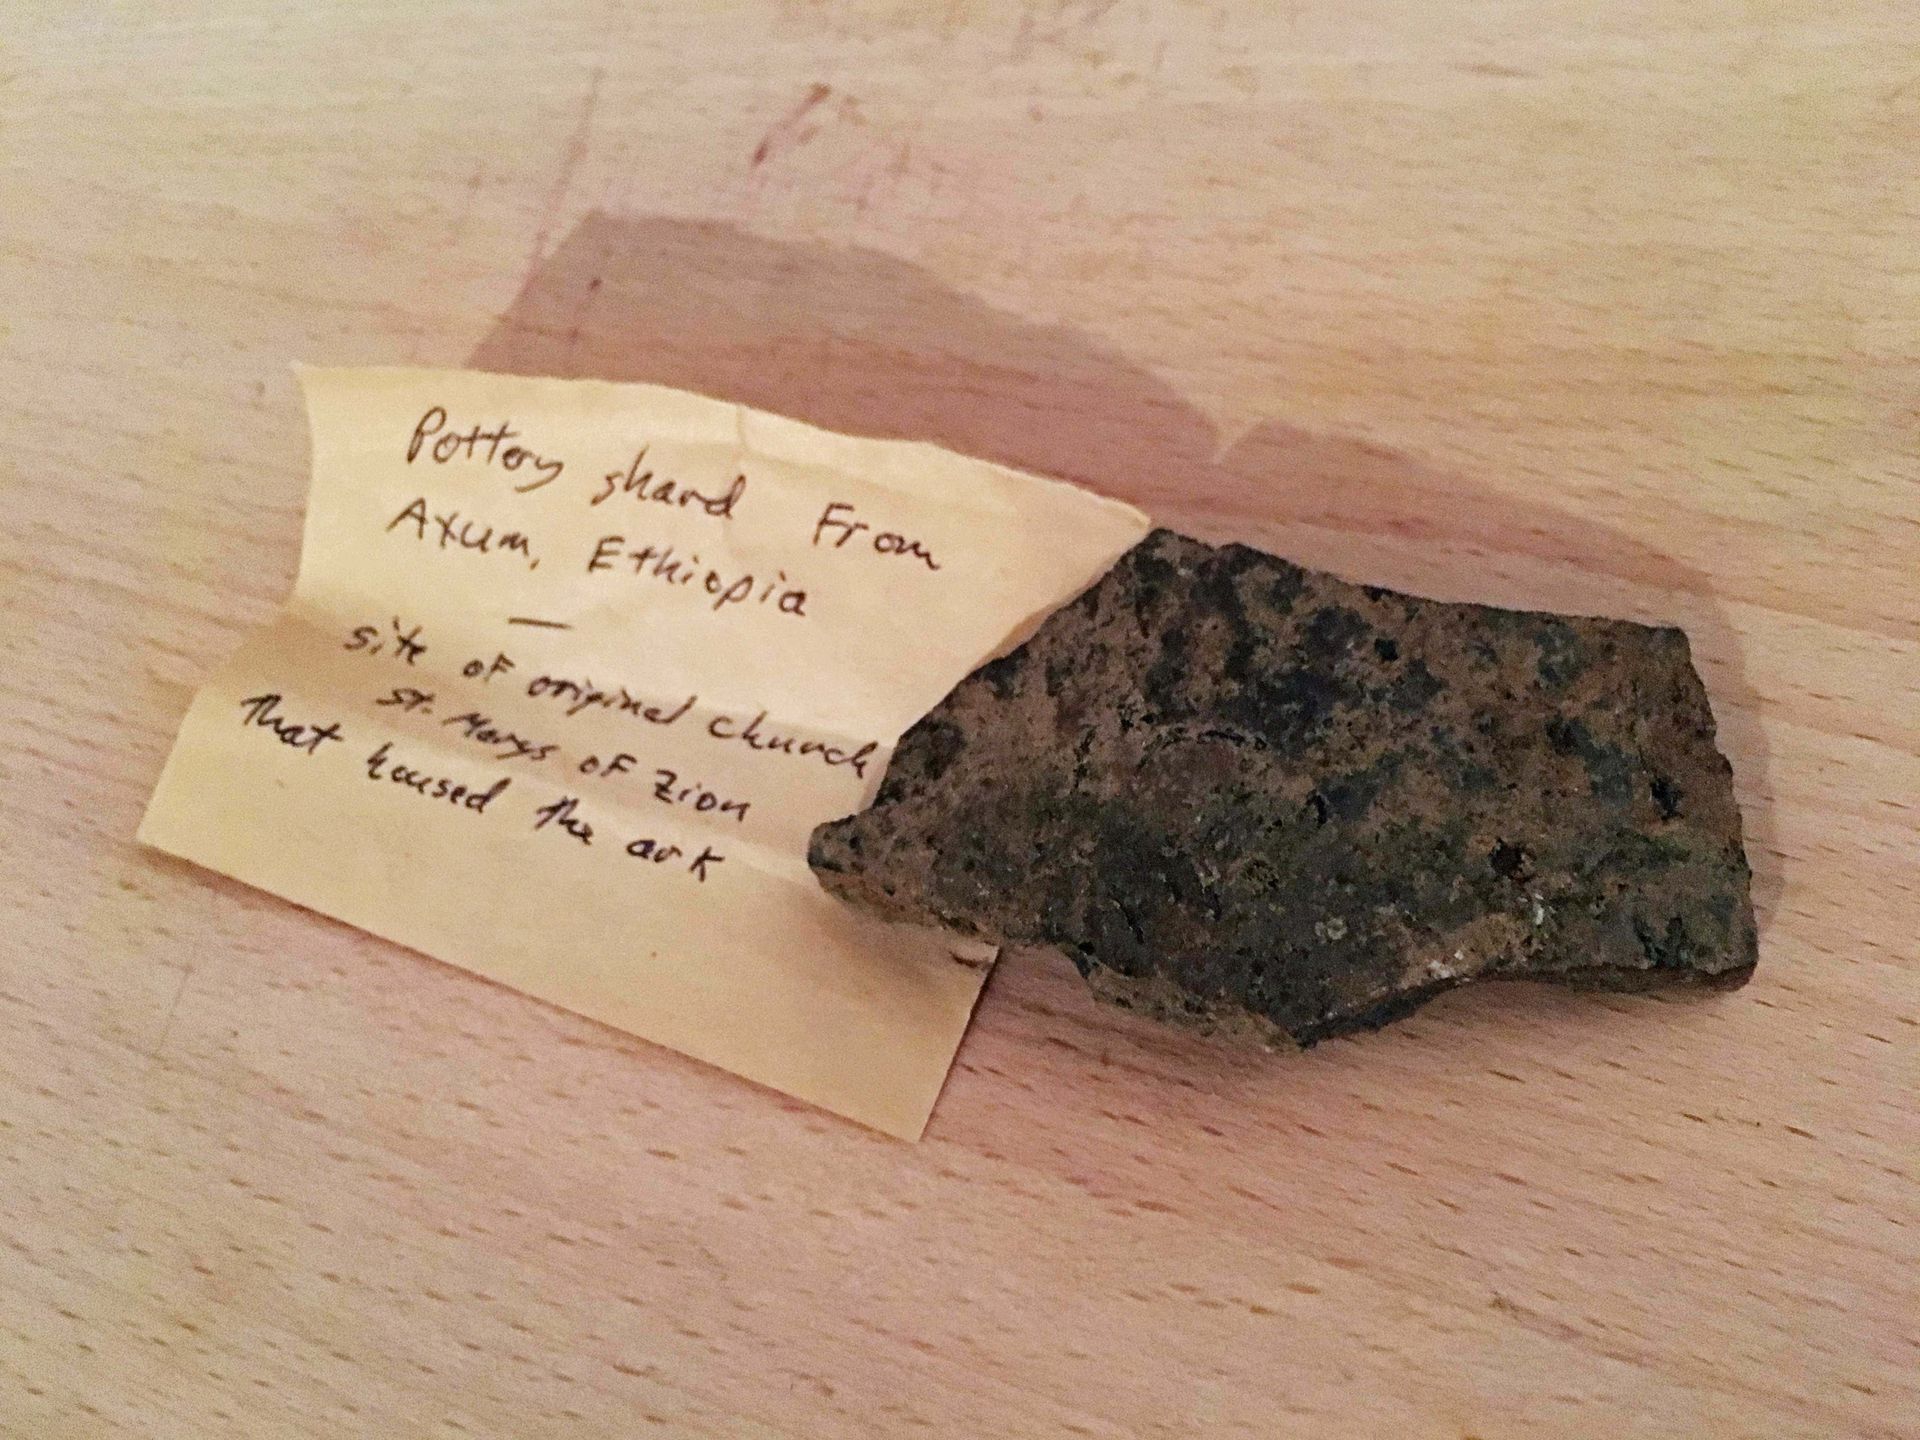 Pottery shard From
Axum, Ethiopia
—
site of original church
St. Marys of Zion
That housed the ark